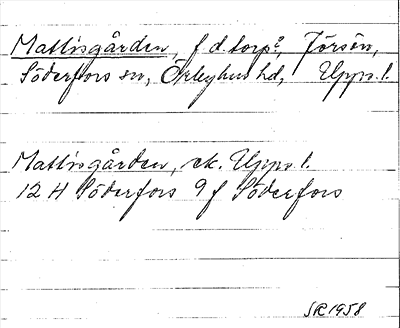 Mattisgården, f.d. torp å Jörsön,
Söderfors sn, Örbyhus hd, Upps. l.
Mattisgården, ek. Upps. l.
12 H Söderfors 9 f Söderfors
SR 1958